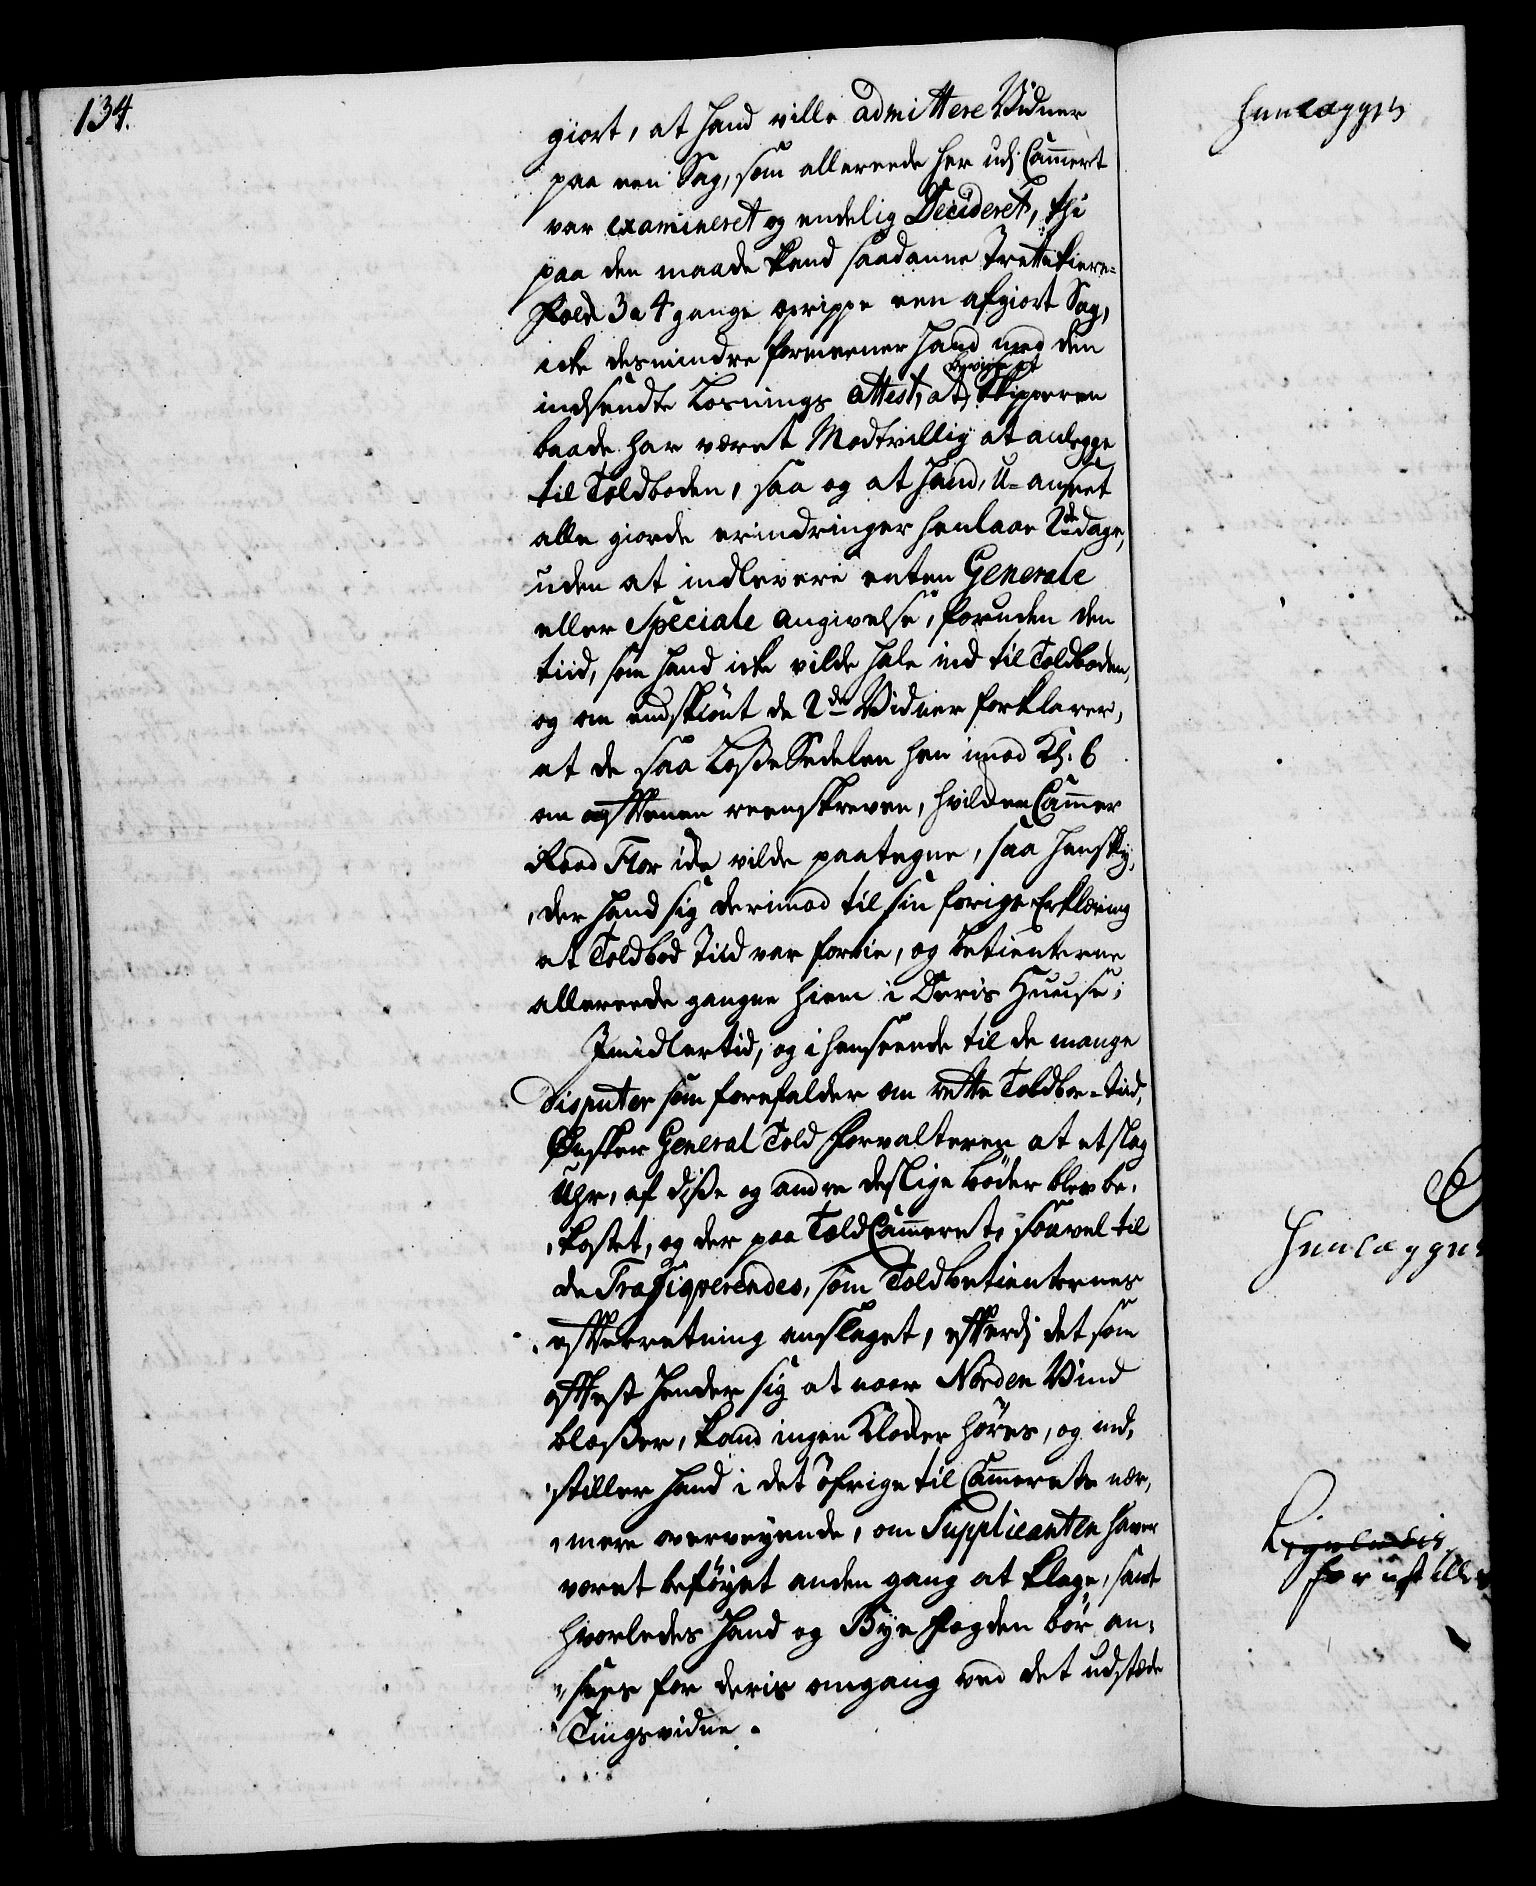 134.
giort, at hand ville admittere Vidner
paa een Sag, som allereede her udj Cammert
var examineret og endelig Decideret, thi
paa den maade kand saadanne Trettekiere-
Folk 3 a 4 gange oprippe een afgiort Sag,
icke desmindre formeener hand med den
beviist at
indsendte Losnings Attest, at Skipperen
baade har været Modtvillig at anlegge
til Toldboden, saa og at hand, u-anseet
alle giorde erindringer henlaae 2de dage,
uden at indlevere enten Generale
eller Speciale angivelse, foruden den
tiid, som hand icke vilde hale ind til Toldboden,
og om endskiønt de 2de Vidner forklarer,
at de saa Losse Sedelen hen imod Kl. 6
om afftenen reenskreven, hvilden Cammer
Raad Flor icke vilde paategne, saa henskyder
hand sig derimod til sin forige Erklæring
at Toldbod Tiid var forbie, og betienterne
allereede gangne hiem i Deris Huuse;
Imidlertid, og i henseende til de mange
Disputer som forefalder om rette Toldboe-Tiid,
Ønsker General Told Forvalteren at et slag
Uhr, af disse og andre deslige bøder blev be-
kostet, og der paa Told Cammeret, saavel til
de Trafiqverendes, som Toldbetienternes
efterretning anslaget, efterdj det som
oftest hender sig at naar Norden Vind
blæser, kand ingen Klocker høres, og ind-
stiller hand i det øfrige til Cammerets nær-
mere overveyende, om Supplicanten haver
været beføyet anden gang at klage, samt
hvorledes hand og Bye Fogden bør an-
sees for deris omgang ved det udstæde
Tingsvidne.
henlægges
Henlægges
forestilles